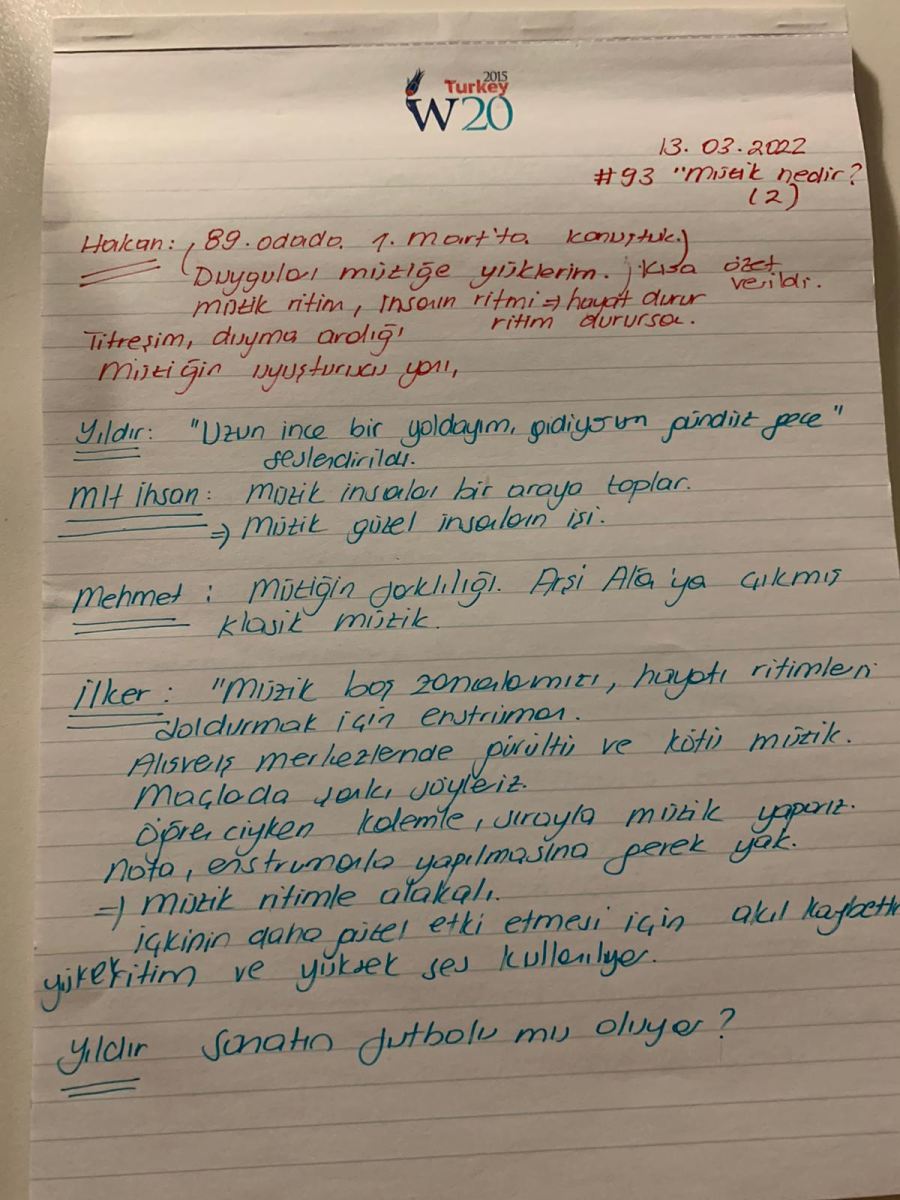 2015
Turkey
W20
13.03.2022
#93 "Müzik nedir?
(2)
Hakan: (89. odada 1. Mart'ta konuştuk.)
Duyguları müziğe yüklerim. kısa özet
verildi.
müzik ritim, insanın ritmi => hayat durur
ritim durursa.
Titreşim, duyma aralığı
Müziğin uyuşturucu yanı,
Yıldır: "Uzun ince bir yoldayım, gidiyorum gündüz gece"
seslendirildi.
Mlt İhsan: Müzik insanları bir araya toplar.
=> Müzik güzel insanların işi.
Mehmet: Müziğin farklılığı. Arşi Ala'ya çıkmış
klasik müzik.
İlker: "Müzik boş zamanlarımızı, hayatı ritimleri
doldurmak için enstrüman.
Alışveriş merkezlerinde gürültü ve kötü müzik.
Maçlarda şarkı söyleriz.
Öğrenciyken kalemle, sırayla müzik yaparız.
Nota, enstrümanla yapılmasına gerek yok.
=> Müzik ritimle alakalı.
İçkinin daha güzel etki etmesi için akıl
ritim ve yüksek ses kullanılıyor.
Yıldır Sanatın futbolu mu oluyor?